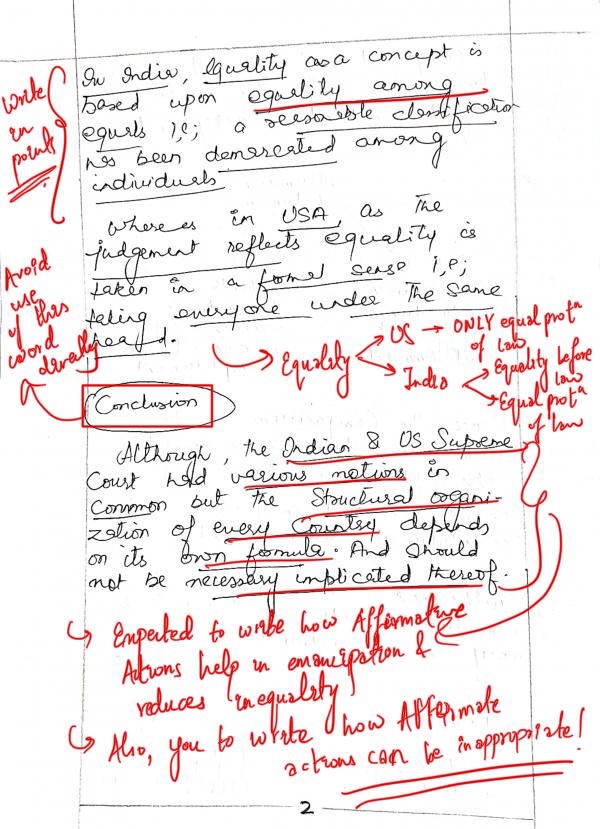 In India, Equality as a concept is
based upon equality among
equals i,e; a reasonable classification
has been demarcated among
individuals
Write
in
points
Whereas in USA, as the
judgement reflects equality is
taken in a formal sense i,e;
taking everyone under the same
Avoid
use
of this
word directly
Equality
US → ONLY equal protn
of law
India
Equality before
law
Equal protn
of law
Conclusion
Although, the Indian & US Supreme
Court held various notions in
common but the Structural organi-
zation of every Country depends
on its own formula. And should
not be necessary implicated thereof.
↳ Expected to write how Affirmative
Actions help in emancipation &
reduces inequality
↳ Also, you to write how Affermate
actions can be inappropriate!
2